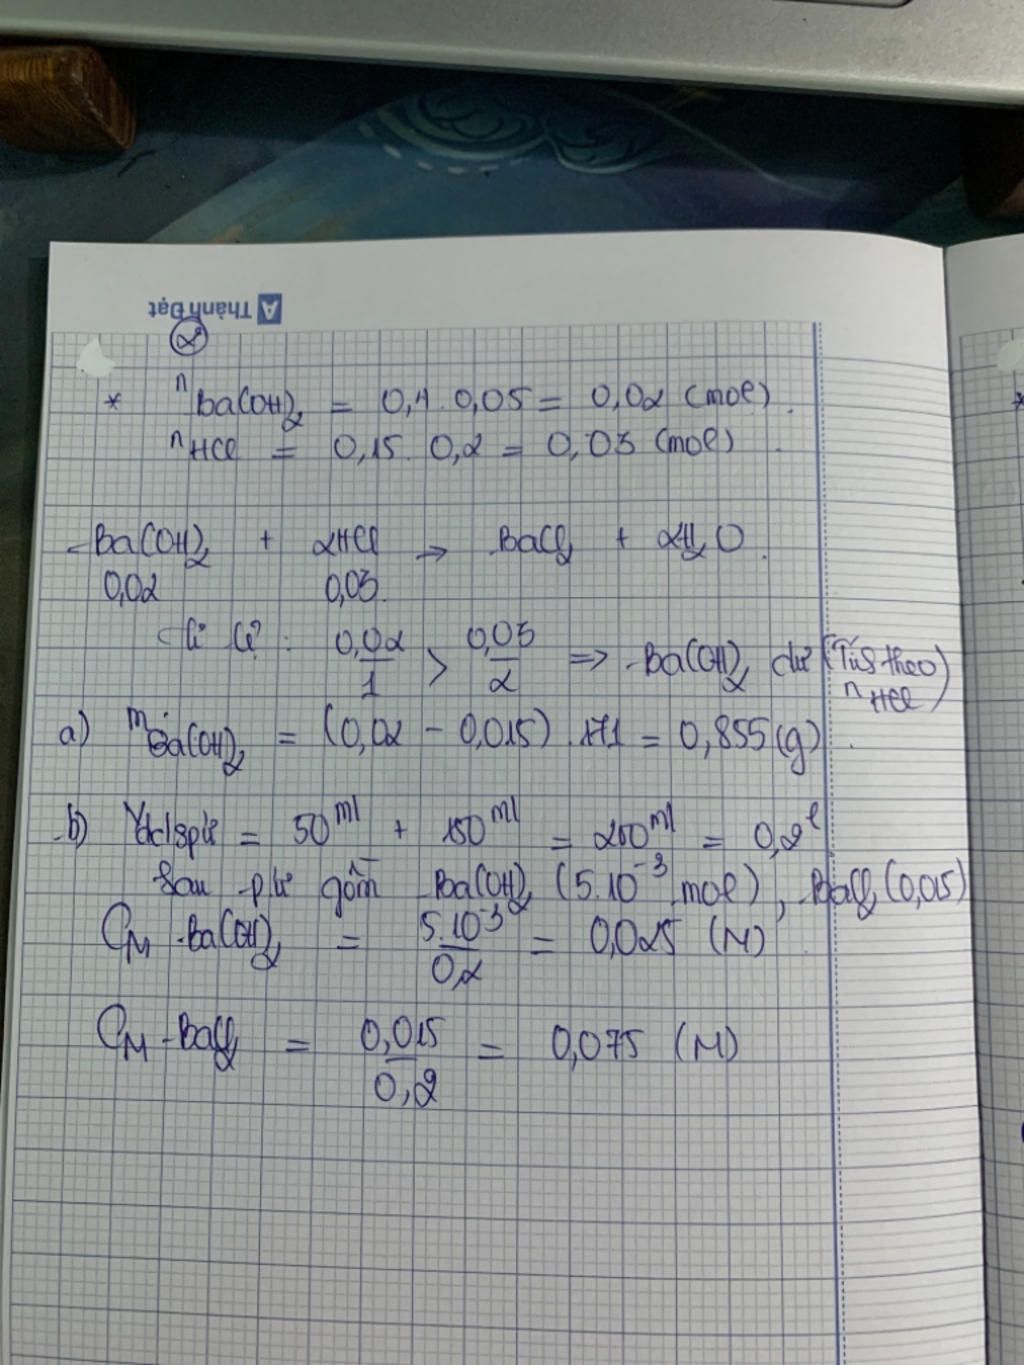 A Thành Đạt
②
* nBa(OH)₂ = 0,4 . 0,05 = 0,02 (mol).
nHCl = 0,15 . 0,2 = 0,03 (mol).
Ba(OH)₂ + 2HCl → BaCl₂ + 2H₂O.
0,02 0,03
Tỉ lệ: 0,02/1 > 0,03/2 => Ba(OH)₂ dư (Tính theo nHCl)
a) mBa(OH)₂ = (0,02 - 0,015) . 171 = 0,855 (g).
b) Vdd spứ = 50ml + 150ml = 200ml = 0,2l
Sau pứ gồm Ba(OH)₂ (5.10⁻³ mol), BaCl₂ (0,015)
CM Ba(OH)₂ = 5.10⁻³/0,2 = 0,025 (M)
CM BaCl₂ = 0,015/0,2 = 0,075 (M)